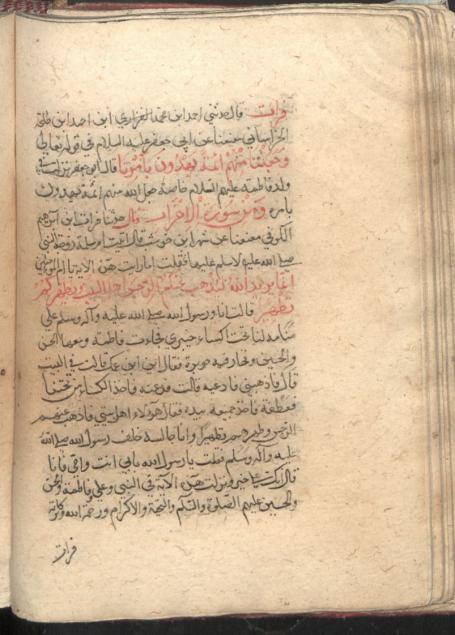 فرات قال حدثني احمد ابن محمد الفزاري ابن احمد ابن طلحة
الخراساني معنعنا عن ابي جعفر عليه السلام في قوله تعالى
وجعلنا منهم ائمة يهدون بامرنا قال ابو جعفر نزلت في
ولد فاطمة عليهم السلام خاصة جعل الله منهم ائمة يهدون
بامره ومن سورة الاحزاب قال حدثنا فرات ابن ابرهيم
الكوفي معنعنا عن شهر ابن حوشب قال اتيت ام سلمة زوجة النبي
صلى الله عليه لاسلم عليها فقلت اما رايت هذه الاية يا ام المؤمنين
انما يريد الله ليذهب عنكم الرجس اهل البيت ويطهركم
تطهيرا قالت انا ورسول الله صلى الله عليه وآله وسلم على
منامة لنا تحت كساء خيبري فجاءت فاطمة ومعها الحسن
والحسين وفخار فيه حريرة فقال اين ابن عمك قالت في البيت
قال فاذهبي فادعيه قالت فدعته فاخذ الكساء من تحتنا
فعطفه فاخذ جميعه بيده فقال هؤلاء اهل بيتي فاذهب عنهم
الرجس وطهرهم تطهيرا وانا جالسة خلف رسول الله صلى الله
عليه وآله وسلم فقلت يا رسول الله بابي انت وامي فانا
قال انك على خير ونزلت هذه الاية في النبي وعلي وفاطمة والحسن
والحسين عليهم الصلوة والسلام والتحية والاكرام ورحمة الله وبركاته
فرات